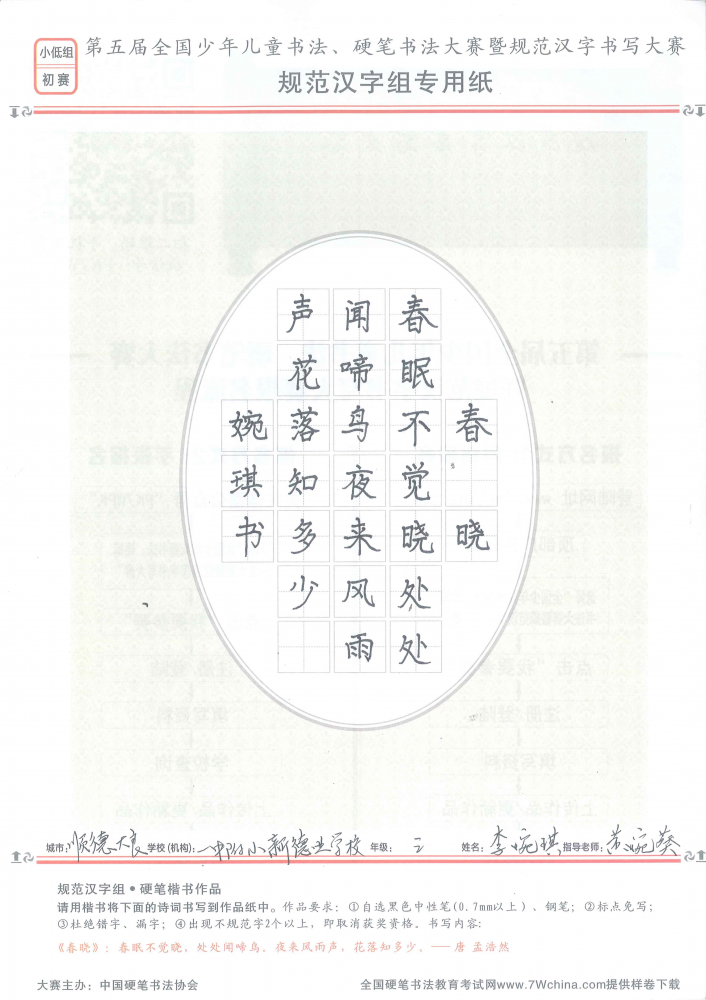 小低组
初赛
第五届全国少年儿童书法、硬笔书法大赛暨规范汉字书写大赛
规范汉字组专用纸
春晓
春眠不觉晓处处
闻啼鸟夜来风雨
声花落知多少
婉琪书
城市：顺德大良 学校（机构）：一中附小新德业学校 年级：二 姓名：李婉琪 指导老师：
规范汉字组·硬笔楷书作品
请用楷书将下面的诗词书写到作品纸中。作品要求：①自选黑色中性笔(0.7mm以上）、钢笔；②标点免写；
③杜绝错字、漏字；④出现不规范字2个以上，即取消获奖资格。书写内容：
《春晓》：春眠不觉晓，处处闻啼鸟。夜来风雨声，花落知多少。——唐 孟浩然
大赛主办：中国硬笔书法协会
全国硬笔书法教育考试网www.7Wchina.com提供样卷下载